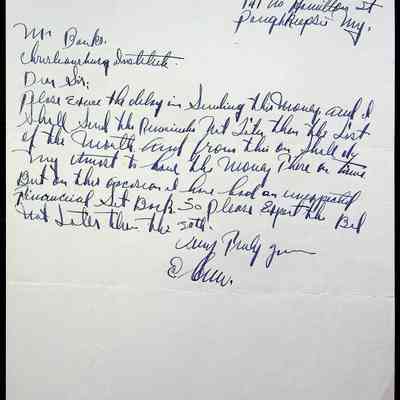 No Hamilton St
Poughkeepsie Ny.
Mr Banks.
Christiansburg Institute.
Dear Sir;
Please Excuse the delay in Sending this Money, and I
Shall Send the Remainder Not Later then the Last
of the Month. and from this on Shall try
my utmost to have the Money There on time.
But on this occasion I have had an unexpected
Financial Set Back. So Please Expect the Bal
Not Later then the 30th.
Very Truly yours